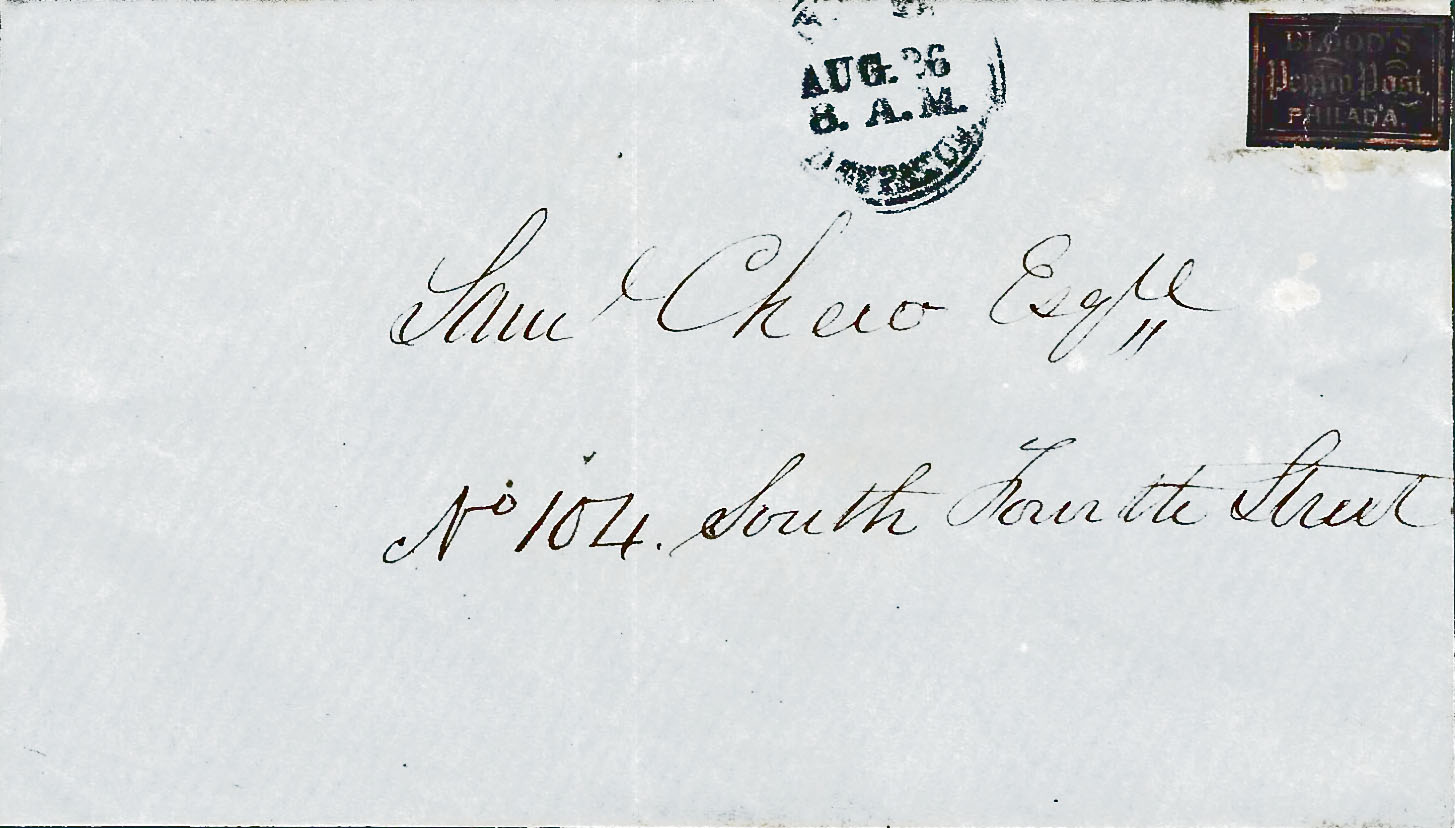 AUG. 26
8. A.M.
BLOOD'S
Penny Post,
PHILAD'A.
Saml Chew Esqre
No 104. South Fourth Street